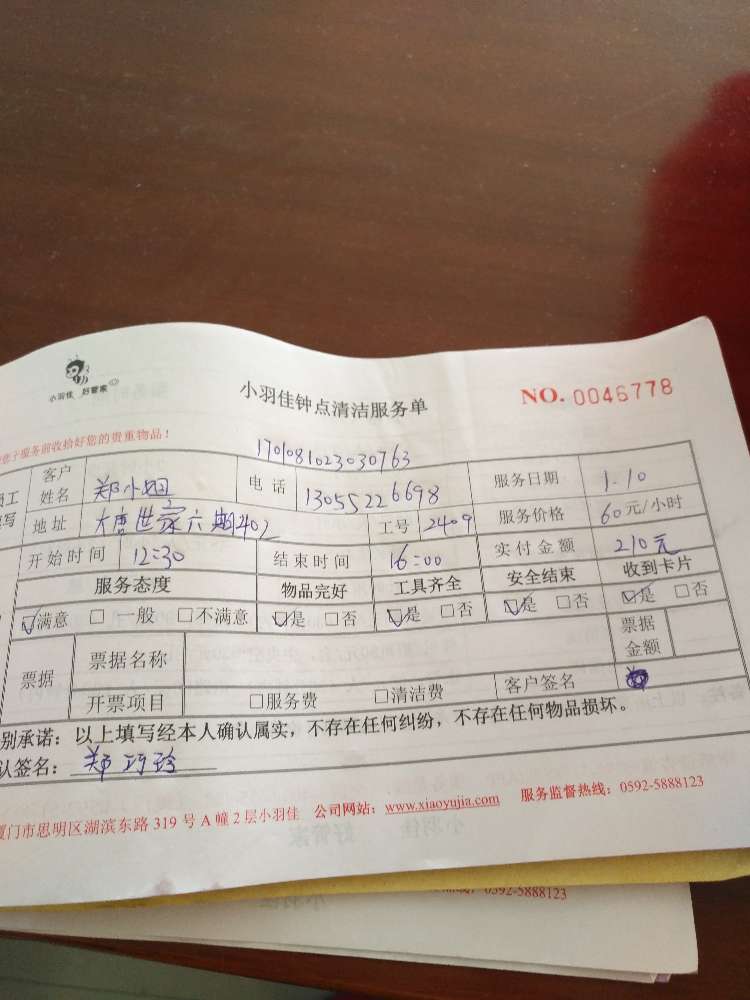 小羽佳 好管家
小羽佳钟点清洁服务单
NO. 0046778
于服务前收拾好您的贵重物品！
170108102303076３
客户姓名 郑小姐 电话 13055226698 服务日期 1.10
地址 大唐世家六期402 工号 2409 服务价格 60元/小时
开始时间 12:30 结束时间 16:00 实付金额 210元
服务态度 物品完好 工具齐全 安全结束 收到卡片
☑满意 □一般 □不满意 ☑是 □否 ☑是 □否 ☑是 □否 ☑是 □否
票据 票据名称 票据金额
开票项目 □服务费 □清洁费 客户签名
别承诺：以上填写经本人确认属实，不存在任何纠纷，不存在任何物品损坏。
认签名：郑巧玲
厦门市思明区湖滨东路319号A幢2层小羽佳 公司网站：www.xiaoyujia.com 服务监督热线：0592-5888123
0592-5888123